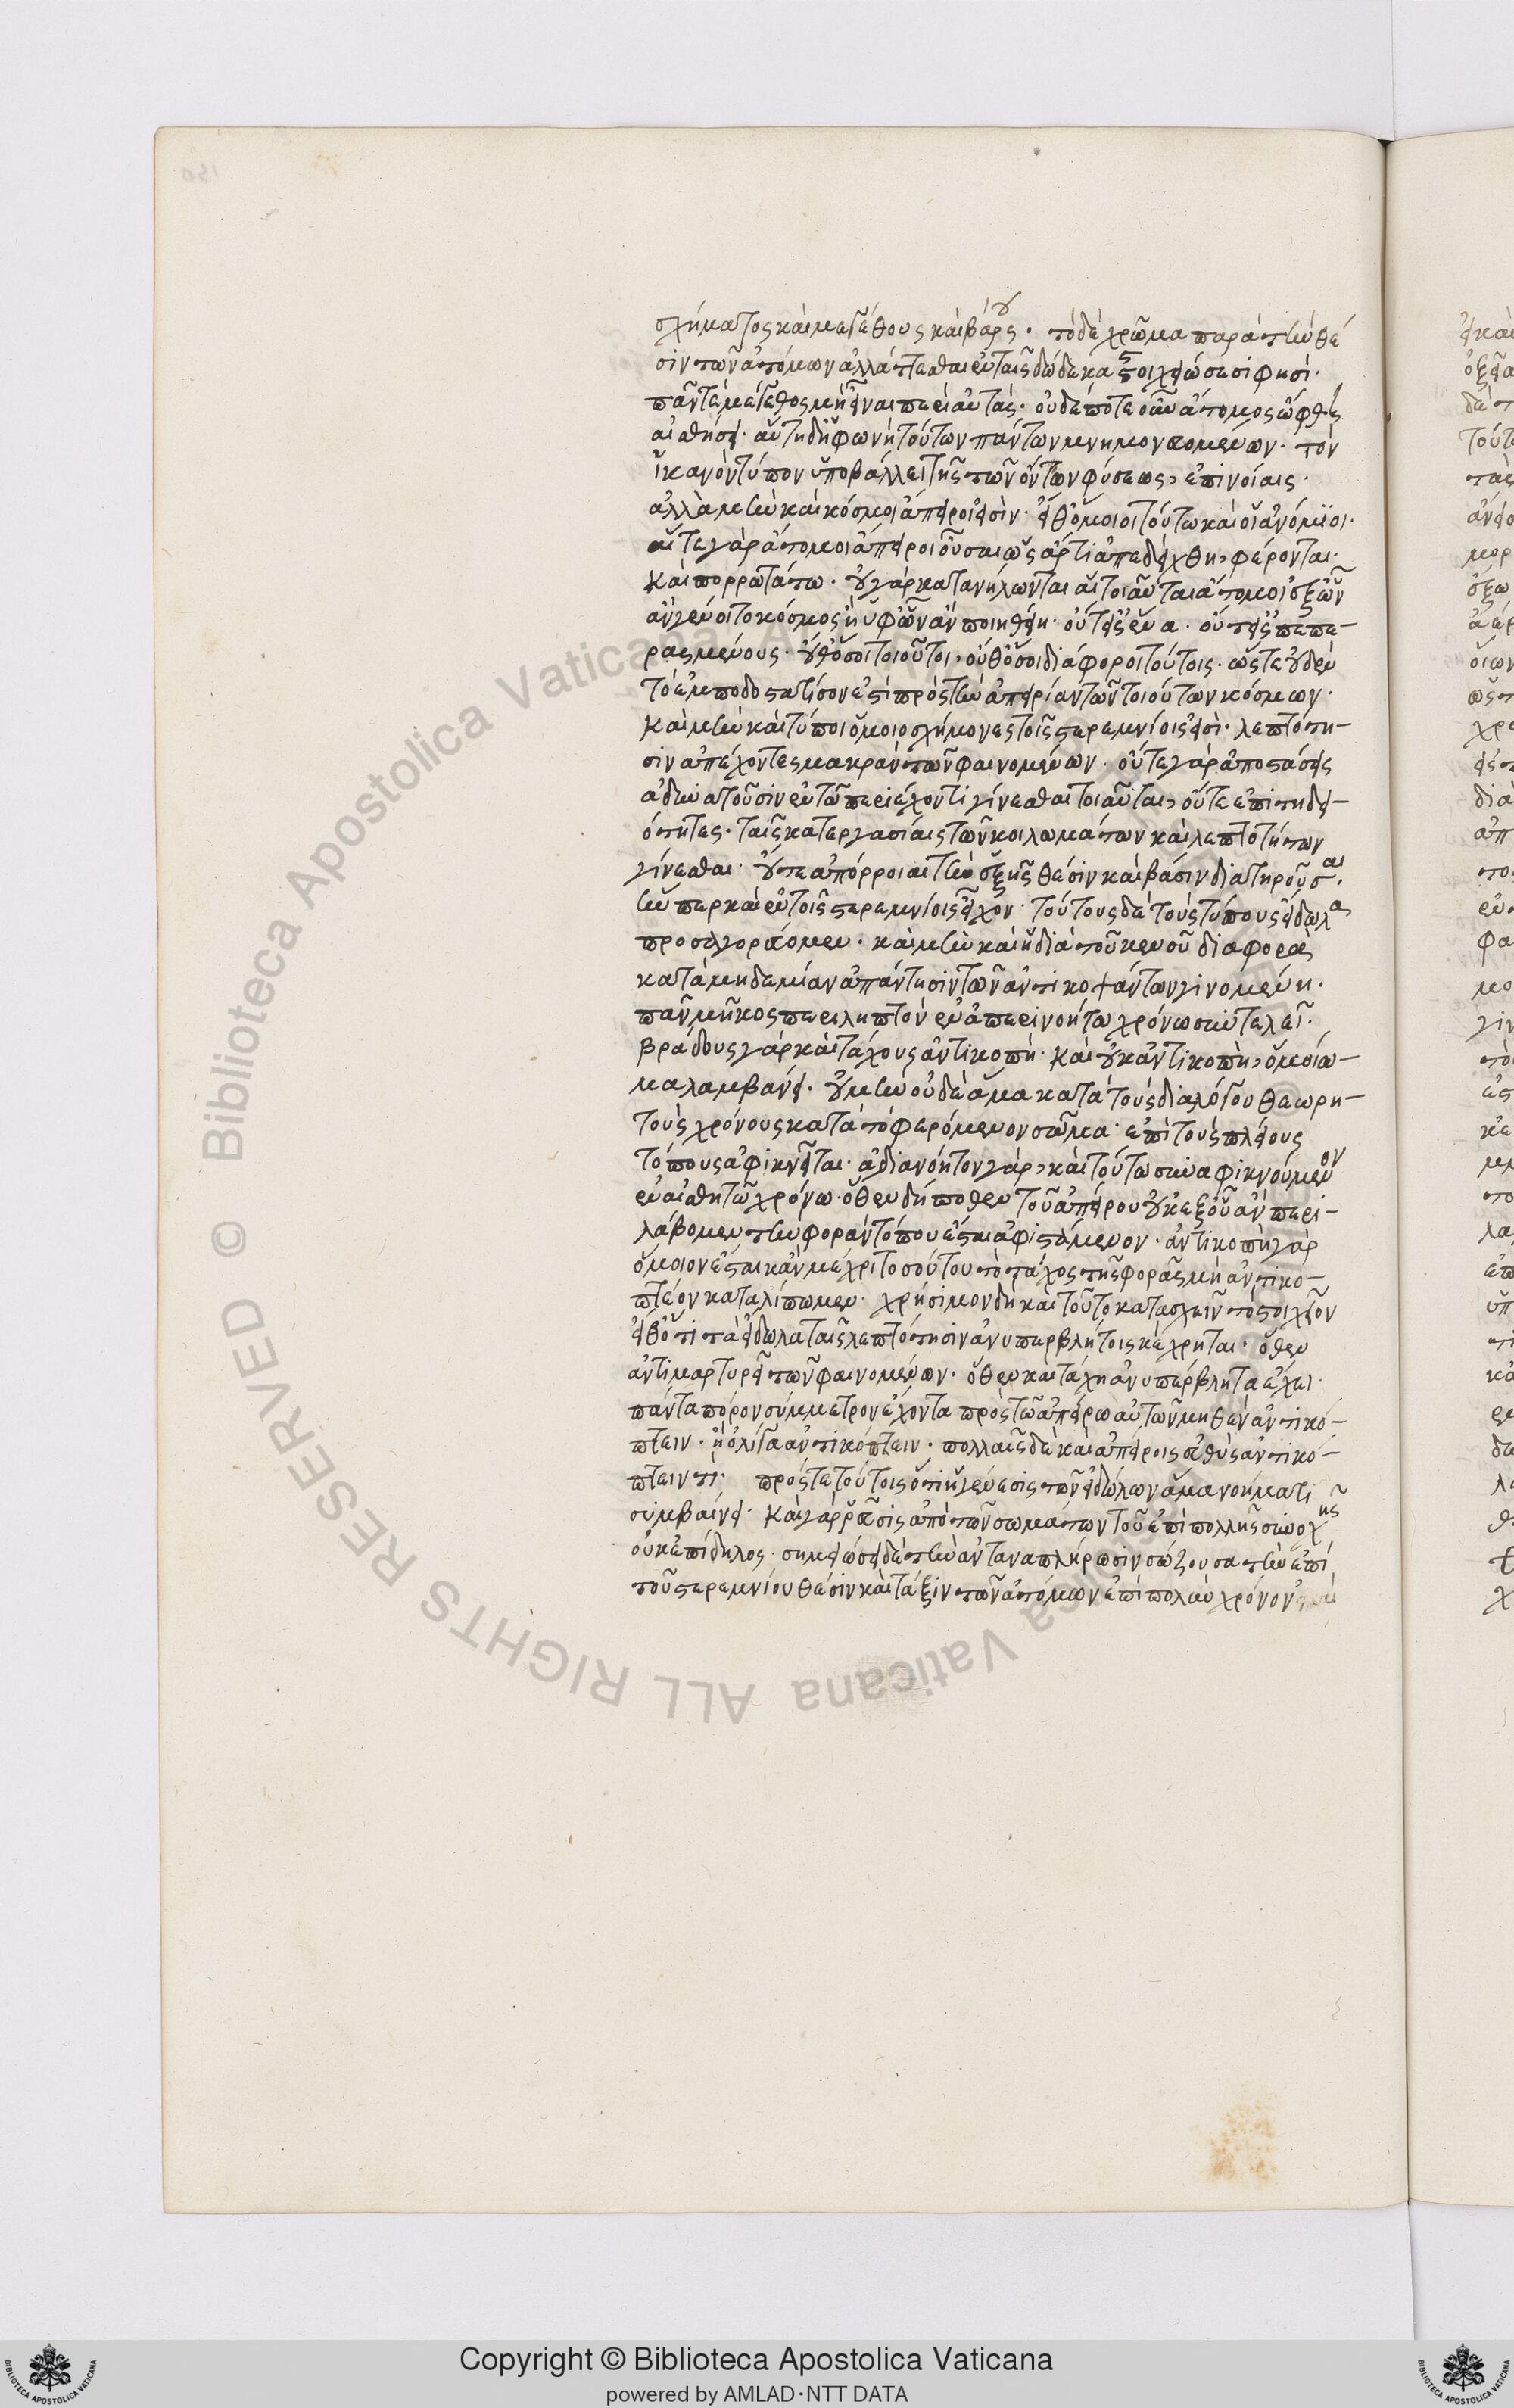 σχήματος καὶ μεγέθους καὶ βάρους· τὸ δὲ χρῶμα παρὰ τὴν θέ
σιν τῶν ἀτόμων ἀλλάττεσθαι ἐν ταῖς δώδεκα στοιχειώσεσί φησι·
πᾶν τε μέγεθος μὴ εἶναι περὶ αὐτάς· οὐδέποτε οὖν ἄτομος ὤφθη
αἰσθήσει· αὕτη δὴ φωνὴ τούτων πάντων μνημονευομένων· τὸν
ἱκανὸν τύπον ὑποβάλλει τῆς τῶν ὄντων φύσεως, ἐπινοίαις·
ἀλλὰ μὴν καὶ κόσμοι ἄπειροι εἰσίν· εἴθ' ὅμοιοι τούτω καὶ οἱ ἀνόμοιοι·
αἵ τε γὰρ ἄτομοι ἄπειροι οὖσαι ὡς ἄρτι ἀπεδείχθη, φέρονται·
καὶ πορρωτάτω· οὐ γὰρ κατανήλωνται αἱ τοιαῦται ἄτομοι ἐξ ὧν
ἂν γένοιτο κόσμος ἢ ὑφ' ὧν ἂν ποιηθείη· οὔτ' εἰς ἕνα· οὔτ' εἰς πεπε-
ρασμένους· οὔθ' ὅσοι τοιοῦτοι, οὔθ' ὅσοι διάφοροι τούτοις· ὥστε οὐδὲν
τὸ ἐμποδοστατῆσον ἐστὶ πρὸς τὴν ἀπειρίαν τῶν τοιούτων κόσμων·
καὶ μὴν καὶ τύποι ὁμοιοσχήμονες τοῖς στερεμνίοις εἰσί· λεπτότη-
σιν ἀπέχοντες μακρὰν τῶν φαινομένων· οὔτε γὰρ ἀποστάσεις
ἀδυνατοῦσιν ἐν τῶ περιέχοντι γίνεσθαι τοιαῦται, οὔτε ἐπιτηδει-
ότητες· ταῖς κατεργασίαις τῶν κοιλωμάτων καὶ λεπτοτήτων
γίνεσθαι· οὔτε ἀπόρροιαι τὴν ἑξῆς θέσιν καὶ βάσιν διατηροῦσαι·
ἥνπερ καὶ ἐν τοῖς στερεμνίοις εἶχον· τούτους δὲ τοὺς τύπους εἴδωλα
προσαγορεύομεν· καὶ μὴν καὶ ἡ διὰ τοῦ κενοῦ διαφορὰ
κατὰ μηδεμίαν ἀπάντησιν τῶν ἀντικοψάντων γινομένη·
πᾶν μῆκος περιληπτὸν ἐν ἀπερινοήτω χρόνω συντελεῖ·
βράδους γὰρ καὶ τάχους ἀντικοπὴ· καὶ οὐκ ἀντικοπὴ, ὁμοίω-
μα λαμβάνει· οὐ μὴν οὐδὲ ἅμα κατὰ τοὺς διαλόγου θεωρη-
τοὺς χρόνους κατὰ τὸ φερόμενον σῶμα· ἐπὶ τοὺς πλείους
τόπους ἀφικνεῖται· ἀδιανόητον γὰρ, καὶ τοῦτο συναφικνούμενον
ἐν αἰσθητῶ χρόνω· ὅθεν δήποθεν τοῦ ἀπείρου οὐκ ἐξ οὗ ἂν περι-
λάβομεν τὴν φορὰν τόπου ἔσται ἀφιστάμενον· ἀντικοπὴ γὰρ
ὅμοιον ἔσται κἂν μέχρι τοσούτου τὸ τάχος τῆς φορᾶς μὴ ἀντικο-
πτέον καταλίπωμεν· χρήσιμον δὴ καὶ τοῦτο κατασχεῖν τὸ στοιχεῖον
εἶθ' ὅτι τὰ εἴδωλα ταῖς λεπτότησιν ἀνυπερβλήτοις κέχρηται· ὅθεν
ἀντιμαρτυρεῖ τῶν φαινομένων· ὅθεν καὶ τάχη ἀνυπέρβλητα ἔχει·
πάντα πόρον σύμμετρον ἔχοντα πρὸς τῶ ἀπείρω αὐτῶν μηθὲν ἀντικό-
πτειν· ἢ ὀλίγα ἀντικόπτειν· πολλαῖς δὲ καὶ ἀπείροις εὐθὺς ἀντικό-
πτειν τί· πρός τε τούτοις ὅτι ἡ γένεσις τῶν εἰδώλων ἅμα νοήματι
συμβαίνει· καὶ γὰρ ῥεῦσις ἀπὸ τῶν σωμάτων τοῦ ἐπιπολῆς συνοχῆς
οὐκ ἐπίδηλος· σημειώσει δὲ τὴν ἀνταναπλήρωσιν σώζουσα τὴν ἐπὶ
τοῦ στερεμνίου θέσιν καὶ τάξιν τῶν ἀτόμων ἐπὶ πολὺν χρόνον
Copyright © Biblioteca Apostolica Vaticana
powered by AMLAD·NTT DATA